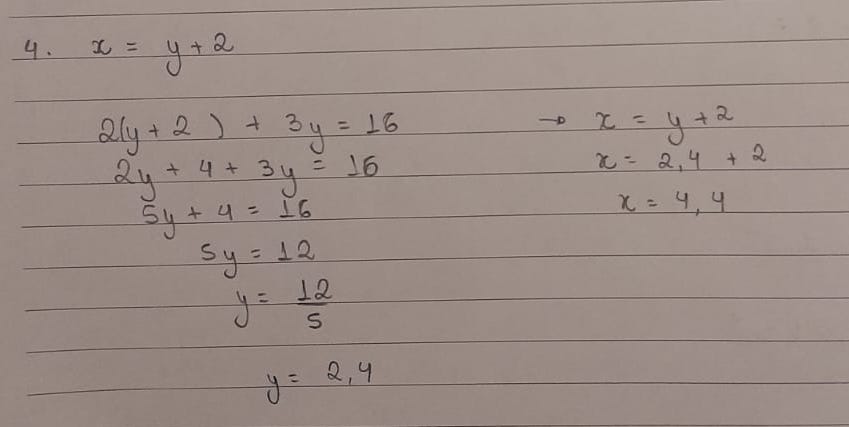 4. x = y + 2
2(y + 2) + 3y = 16
2y + 4 + 3y = 16
5y + 4 = 16
5y = 12
y = 12/5
y = 2,4
→ x = y + 2
x = 2,4 + 2
x = 4,4